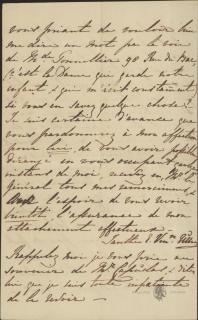 vous priant de vouloir bien
me dire un mot par la voie
de Mde Tonnellier 90 Rue du Bac,
c'est la Dame qui garde notre
enfant & qui m'écrit constamment
si vous en savez quelque chose ?
Je suis certaine d'avance que
vous pardonnerez à mon affection
pour lui, de vous avoir
dérangé en vous occupant
instans de moi, Mr le
Général tous mes remerciemens,
l'espoir de vous revoir
bientôt l'assurance de mon
attachement affectueux
Ianthe
Rappelez moi je vous prie au
souvenir de Mr
lui que je suis toute impatiente
de la revoir —